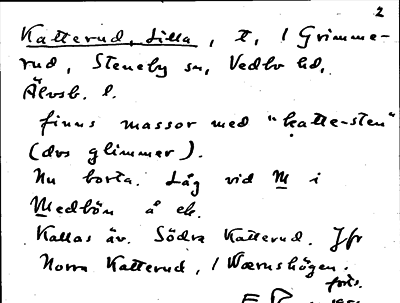 2
Katterud, Lilla, t, / Grimme-
rud, Steneby sn, Vedbo hd,
Älvsb. l.
finns massor med "katte-sten"
(dvs glimmer).
Nu borta. Låg vid M i
Medbön å ek.
Kallas äv. Södra Katterud. Jfr
Norra Katterud, / Wærnshögen.
forts.